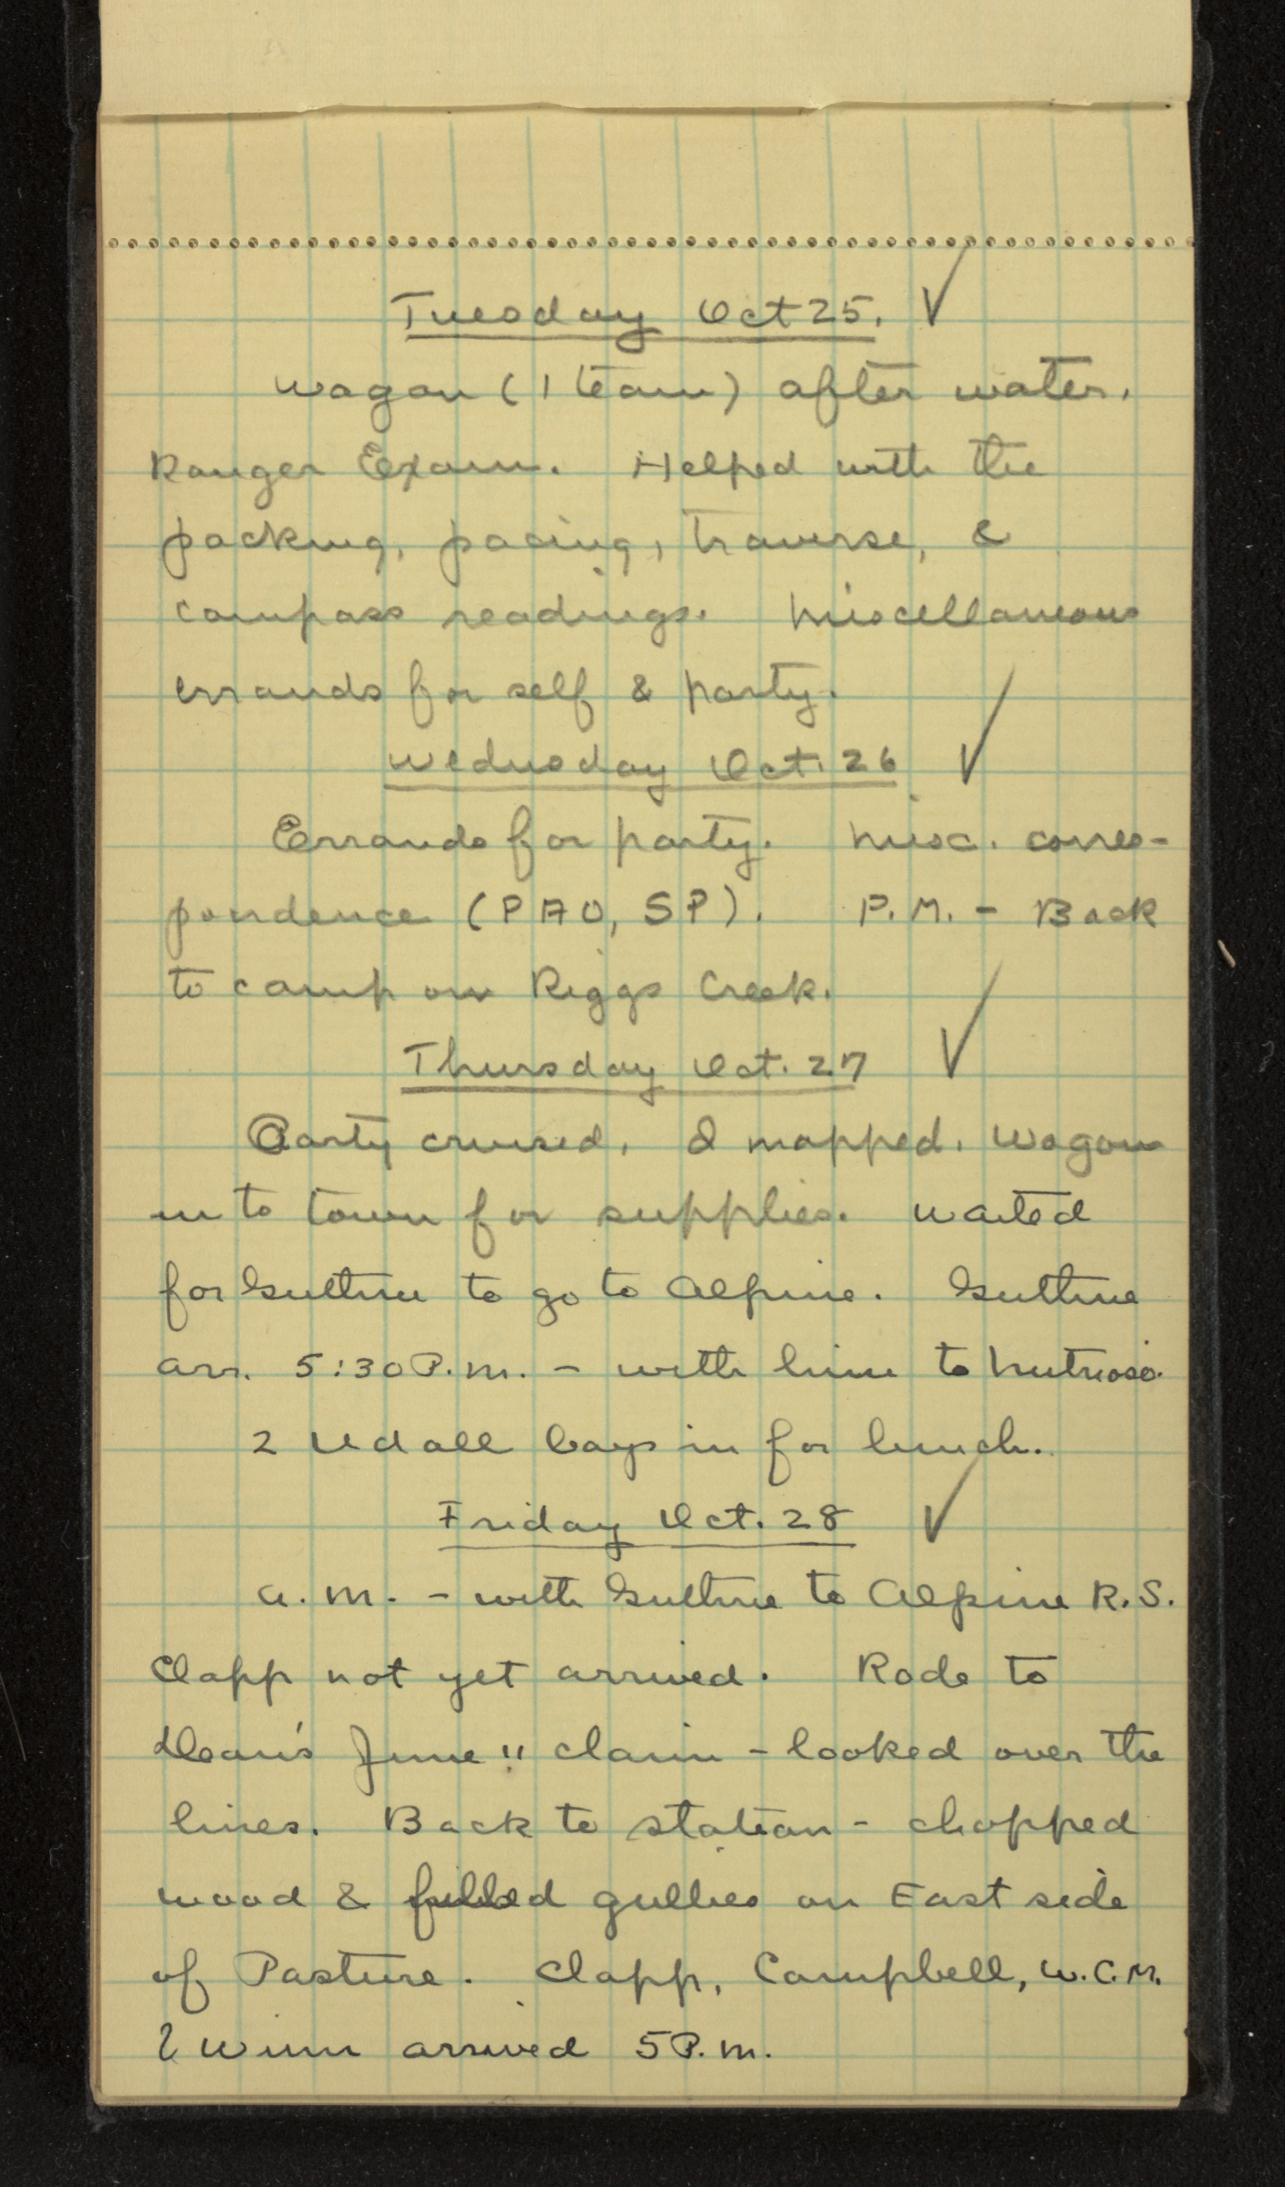 Tuesday Oct 25. ✓
Wagon (1 team) after water.
Ranger Exam. Helped with the
packing, pacing, traverse, &
compass readings. Miscellaneous
errands for self & party.
Wednesday Oct. 26 ✓
Errands for party. Misc. corres-
pondence (PAO, SP). P.M. - Back
to camp on Riggs Creek.
Thursday Oct. 27 ✓
Party cruised, I mapped. Wagon
in to town for supplies. Waited
for Guthrie to go to Alpine. Guthrie
arr. 5:30 P.M. - with him to Nutrioso.
2 Udall boys in for lunch.
Friday Oct. 28 ✓
A.M. - with Guthrie to Alpine R.S.
Clapp not yet arrived. Rode to
June 11 claim - looked over the
lines. Back to station - chopped
wood & filled gullies on East side
of Pasture. Clapp, Campbell, W.C.M.
& Winn arrived 5 P.M.